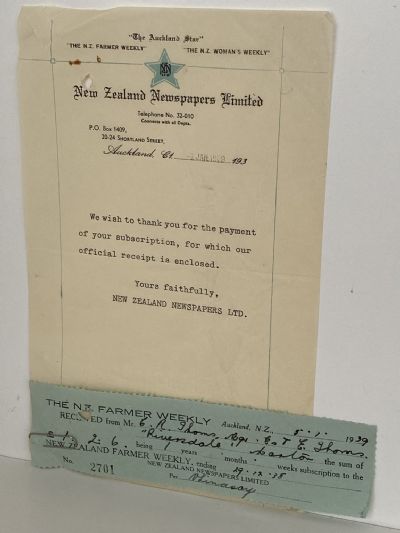 "The Auckland Star"
"THE N.Z. FARMER WEEKLY" "THE N.Z. WOMAN'S WEEKLY"
New Zealand Newspapers Limited
Telephone No. 32-010
Connects with all Depts.
P.O. Box 1409,
20-24 Shortland Street,
Auckland, C1 JAN 1939 193
We wish to thank you for the payment
of your subscription, for which our
official receipt is enclosed.
Yours faithfully,
NEW ZEALAND NEWSPAPERS LTD.
THE N.Z. FARMER WEEKLY Auckland, N.Z., 5.1.1939
RECEIVED from Mr. E. R. Thoms E. Thoms
"Riversdale" Marton the sum of
£ 1 : 2 : 6. being years months weeks subscription to the
NEW ZEALAND FARMER WEEKLY, ending 29.12.38
NEW ZEALAND NEWSPAPERS LIMITED
No. 2701 Per Lindsay